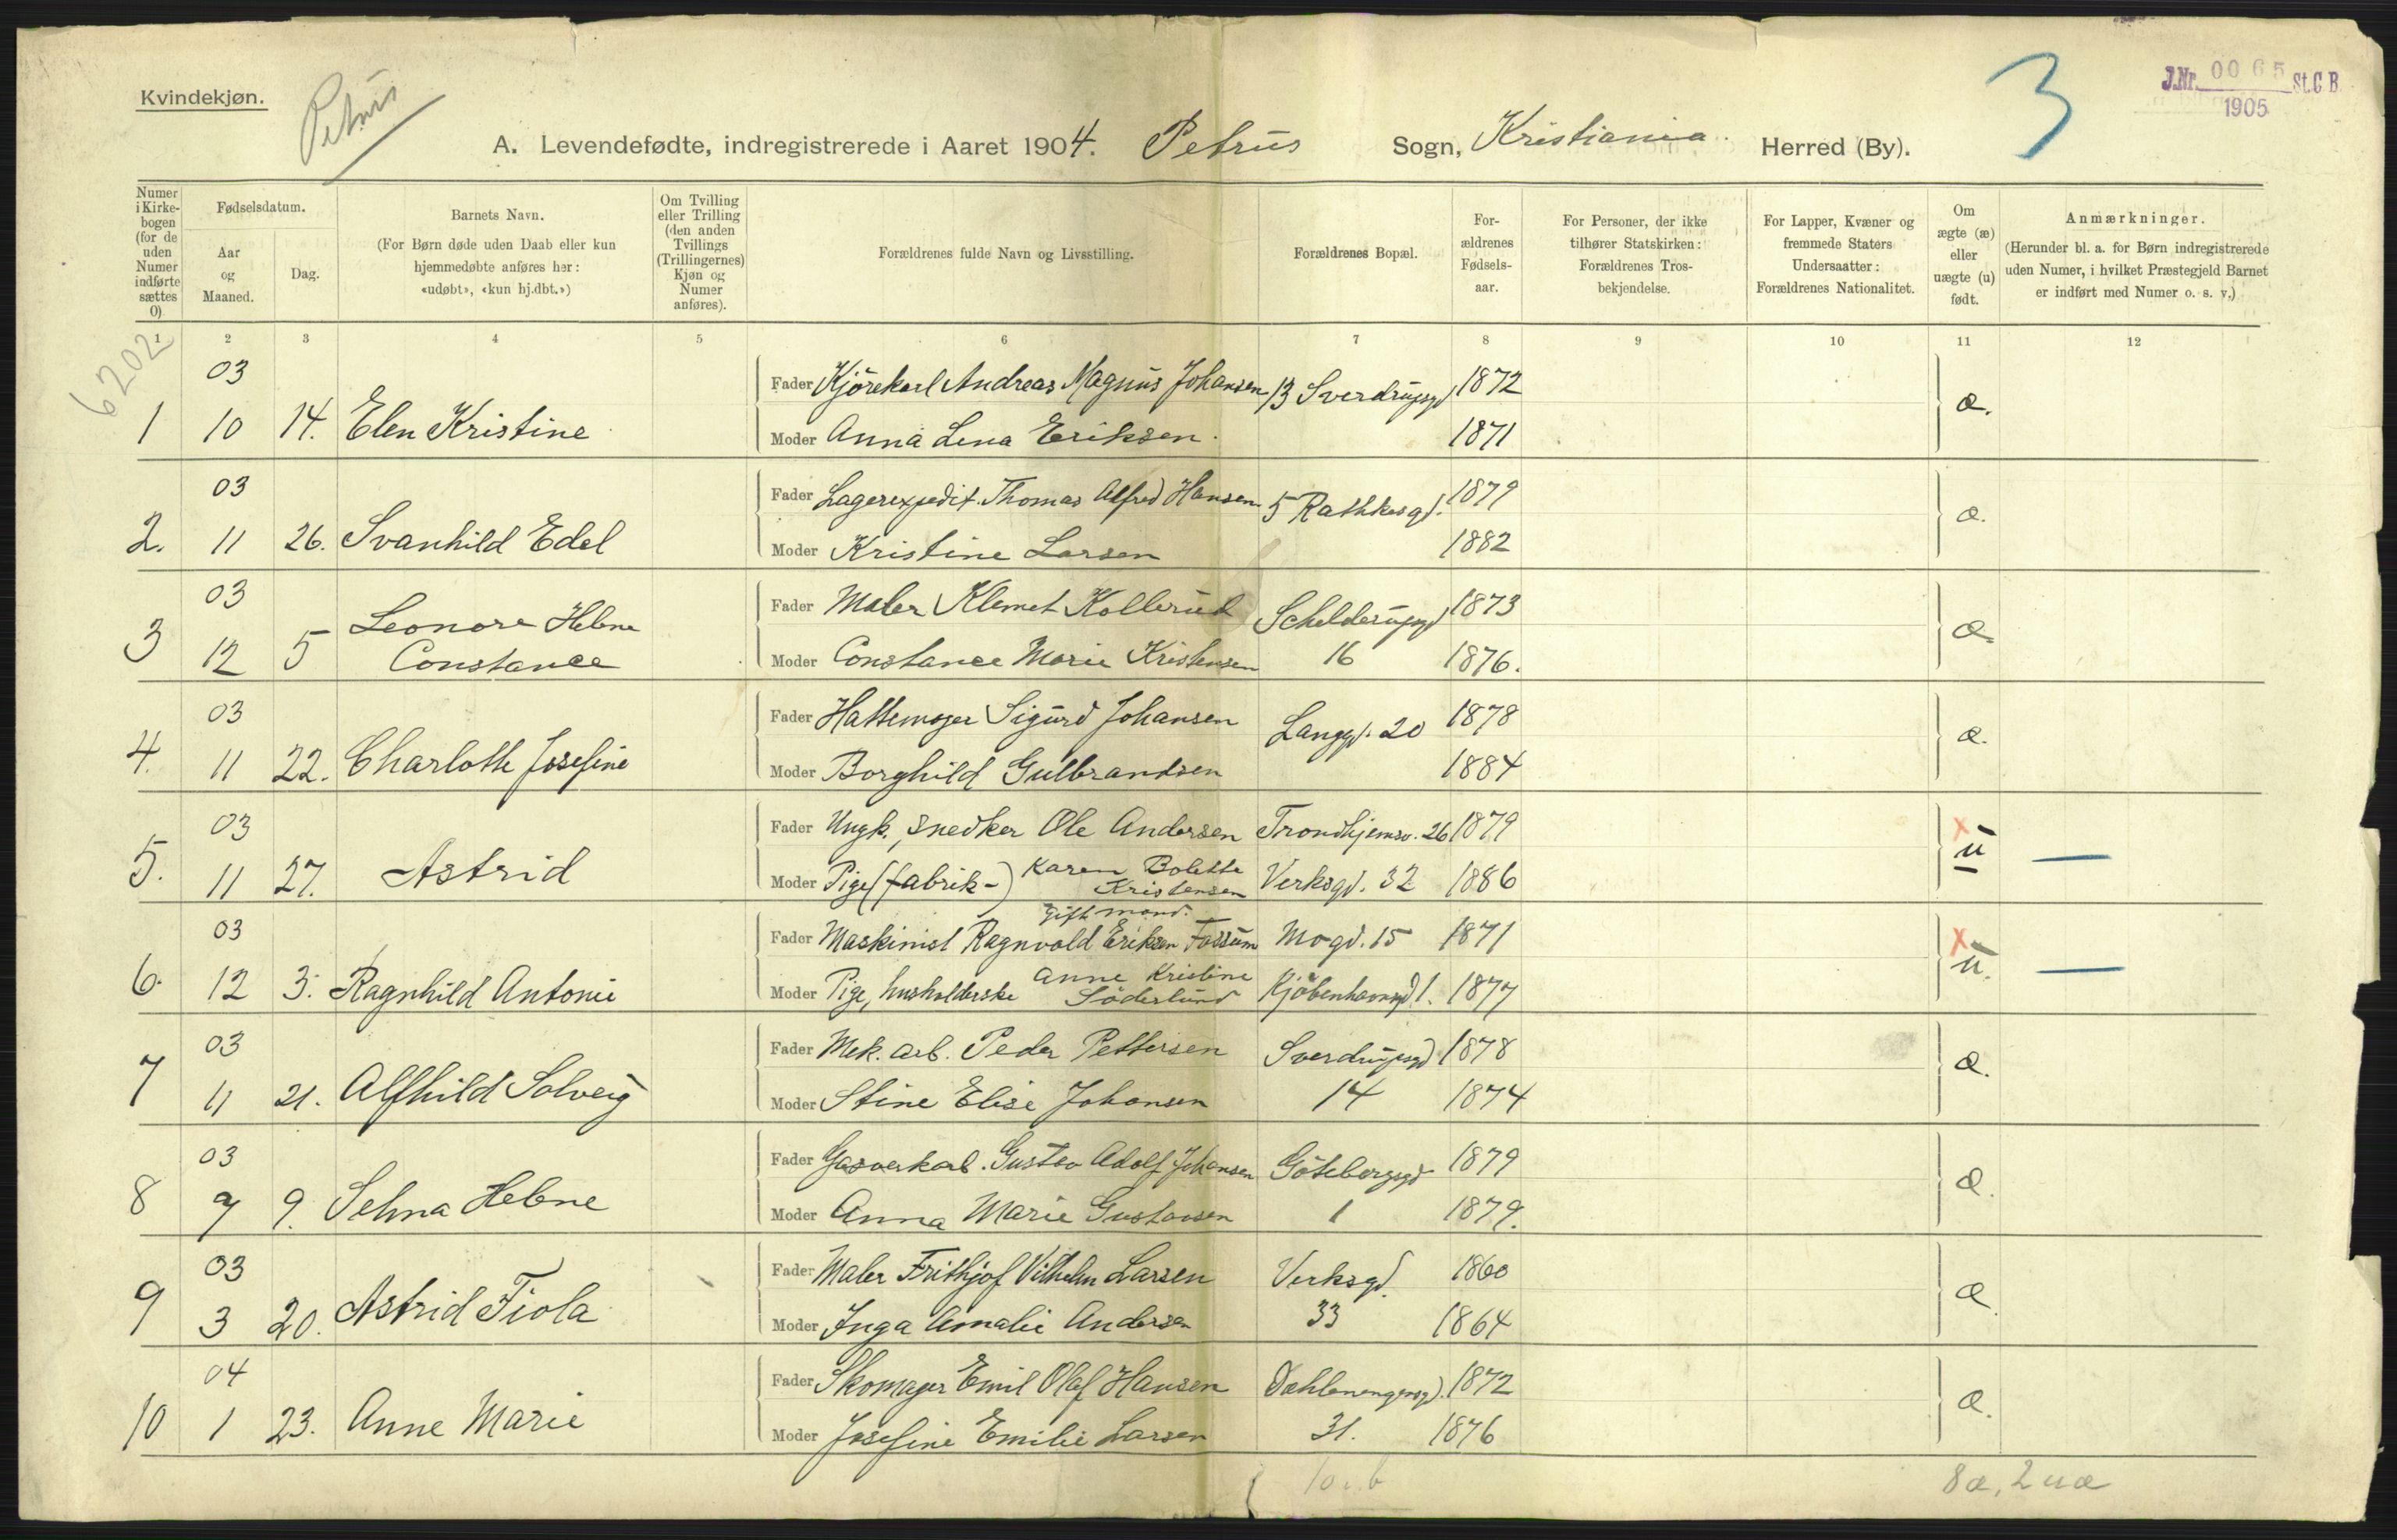 Kvindekjøn.
Petrus
3
J.Nr. 0065 St.C.B.
1905
A. Levendefødte, indregistrerede i Aaret 1904. Petrus Sogn, Kristiania Herred (By).
Numer i Kirkebogen (for de uden Numer indførte sættes 0)
Fødselsdatum.
Aar og Maaned.
Dag.
Barnets Navn.
(For Børn døde uden Daab eller kun hjemmedøbte anføres her: «udøbt», «kun hj.dbt.»)
Om Tvilling eller Trilling (den anden Tvillings (Trillingernes) Kjøn og Numer anføres).
Forældrenes fulde Navn og Livsstilling.
Forældrenes Bopæl.
Forældrenes Fødselsaar.
For Personer, der ikke tilhører Statskirken: Forældrenes Trosbekjendelse.
For Lapper, Kvæner og fremmede Staters Undersaatter: Forældrenes Nationalitet.
Om ægte (æ) eller uægte (u) født.
Anmærkninger.
(Herunder bl. a. for Børn indregistrerede uden Numer, i hvilket Præstegjeld Barnet er indført med Numer o. s. v.)
1 2 3 4 5 6 7 8 9 10 11 12
6202
03
Fader Kjørekarl Andreas Magnus Johansen 13 Sverdrupsgd 1872
1 10 14. Elen Kristine æ.
Moder Anna Lena Eriksen. 1871
03
Fader Lagerexpedit. Thomas Alfred Hansen. 5 Rathkesgd. 1879
2. 11 26. Svanhild Edel æ.
Moder Kristine Larsen 1882
03
Fader Maler Klemet Kollerud Schelderupsgd 1873
3 12 5 Leonore Helene Constance æ.
Moder Constance Marie Kristensen 16 1876.
03
Fader Hattemager Sigurd Johansen Langgd. 20 1878
4. 11 22. Charlotte Josefine æ.
Moder Borghild Gulbrandsen 1884
03
Fader Ungk., snedker Ole Andersen Trondhjemsv. 26 1879
5. 11 27. Astrid x u —
Moder Pige (fabrik-) Karen Bolette Kristensen Verksgd. 32 1886
03
gift mand.
Fader Maskinist Ragnvald Eriksen Fossum Mogd. 15 1871
6. 12 3. Ragnhild Antonie x u. —
Moder Pige, husholderske Anne Kristine Söderlund Kjøbenhavngd 1. 1877
03
Fader Mek. arb. Peder Pettersen Sverdrupsgd 1878
7 11 21. Alfhild Solveig æ.
Moder Stine Elise Johansen 14 1874
03
Fader Gasverkarb. Gustav Adolf Johansen Göteborgsgd 1879
8 7 9. Selma Helene æ.
Moder Anna Marie Gustavsen 1 1879.
03
Fader Maler Frithjof Vilhelm Larsen Verksgd. 1860
9 3 20. Astrid Fiola æ.
Moder Inga Amalie Andersen 33 1864
04
Fader Skomager Emil Olaf Hansen Dæhlenengensgd. 1872
10 1 23. Anne Marie æ.
Moder Josefine Emilie Larsen 31. 1876
8æ, 2uæ